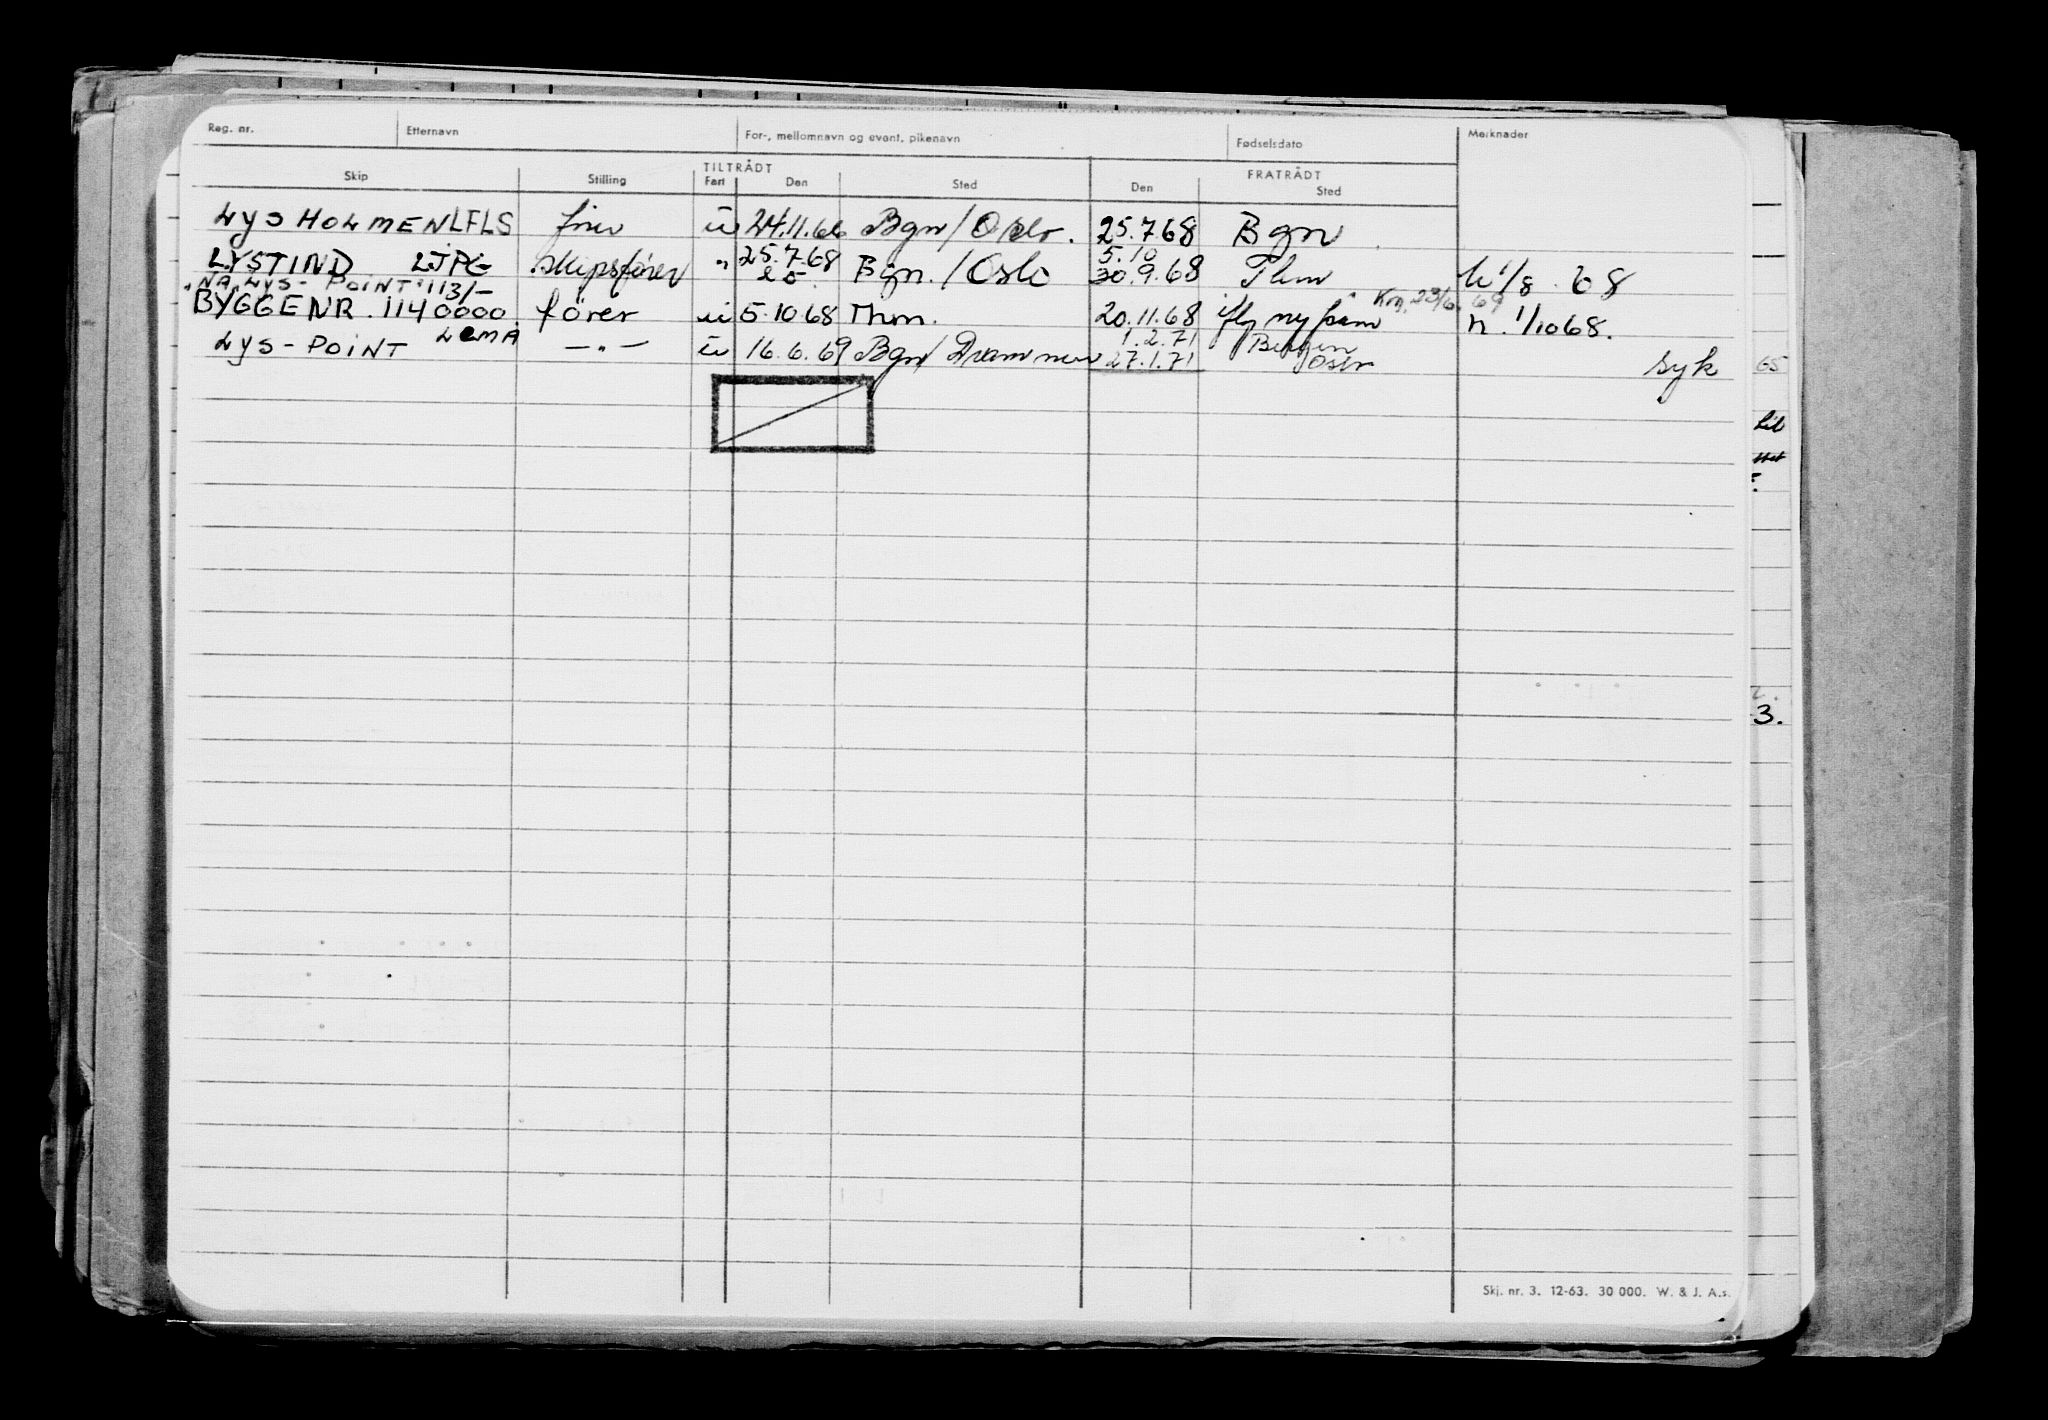 Reg. nr. Etternavn For-, mellomnavn og event. pikenavn Fødselsdato Merknader
TILTRÅDT FRATRÅDT
Skip Stilling Fart Den Sted Den Sted
LYS HOLMEN LFLS fører u 24.11.66 Bgn/Oslo. 25.7.68 Bgn
LYSTIND LJPG skipsfører " 25.7.68 Bgn./Oslo 5.10 30.9.68 Thm h 1/8 68
"NÅ LYS-POINT" 113/-
BYGGENR. 114 0000 fører u 5.10.68 Thm. 20.11.68 ny Kon. 23/6. 69 h. 1/10 68.
LYS-POINT LEMA -"- u 16.6.69 Bgn/Drammen 1.2.71 Bergen
27.1.71 Oslo syk
65
3.
Skj. nr. 3. 12-63. 30 000. W. & J. A.s.